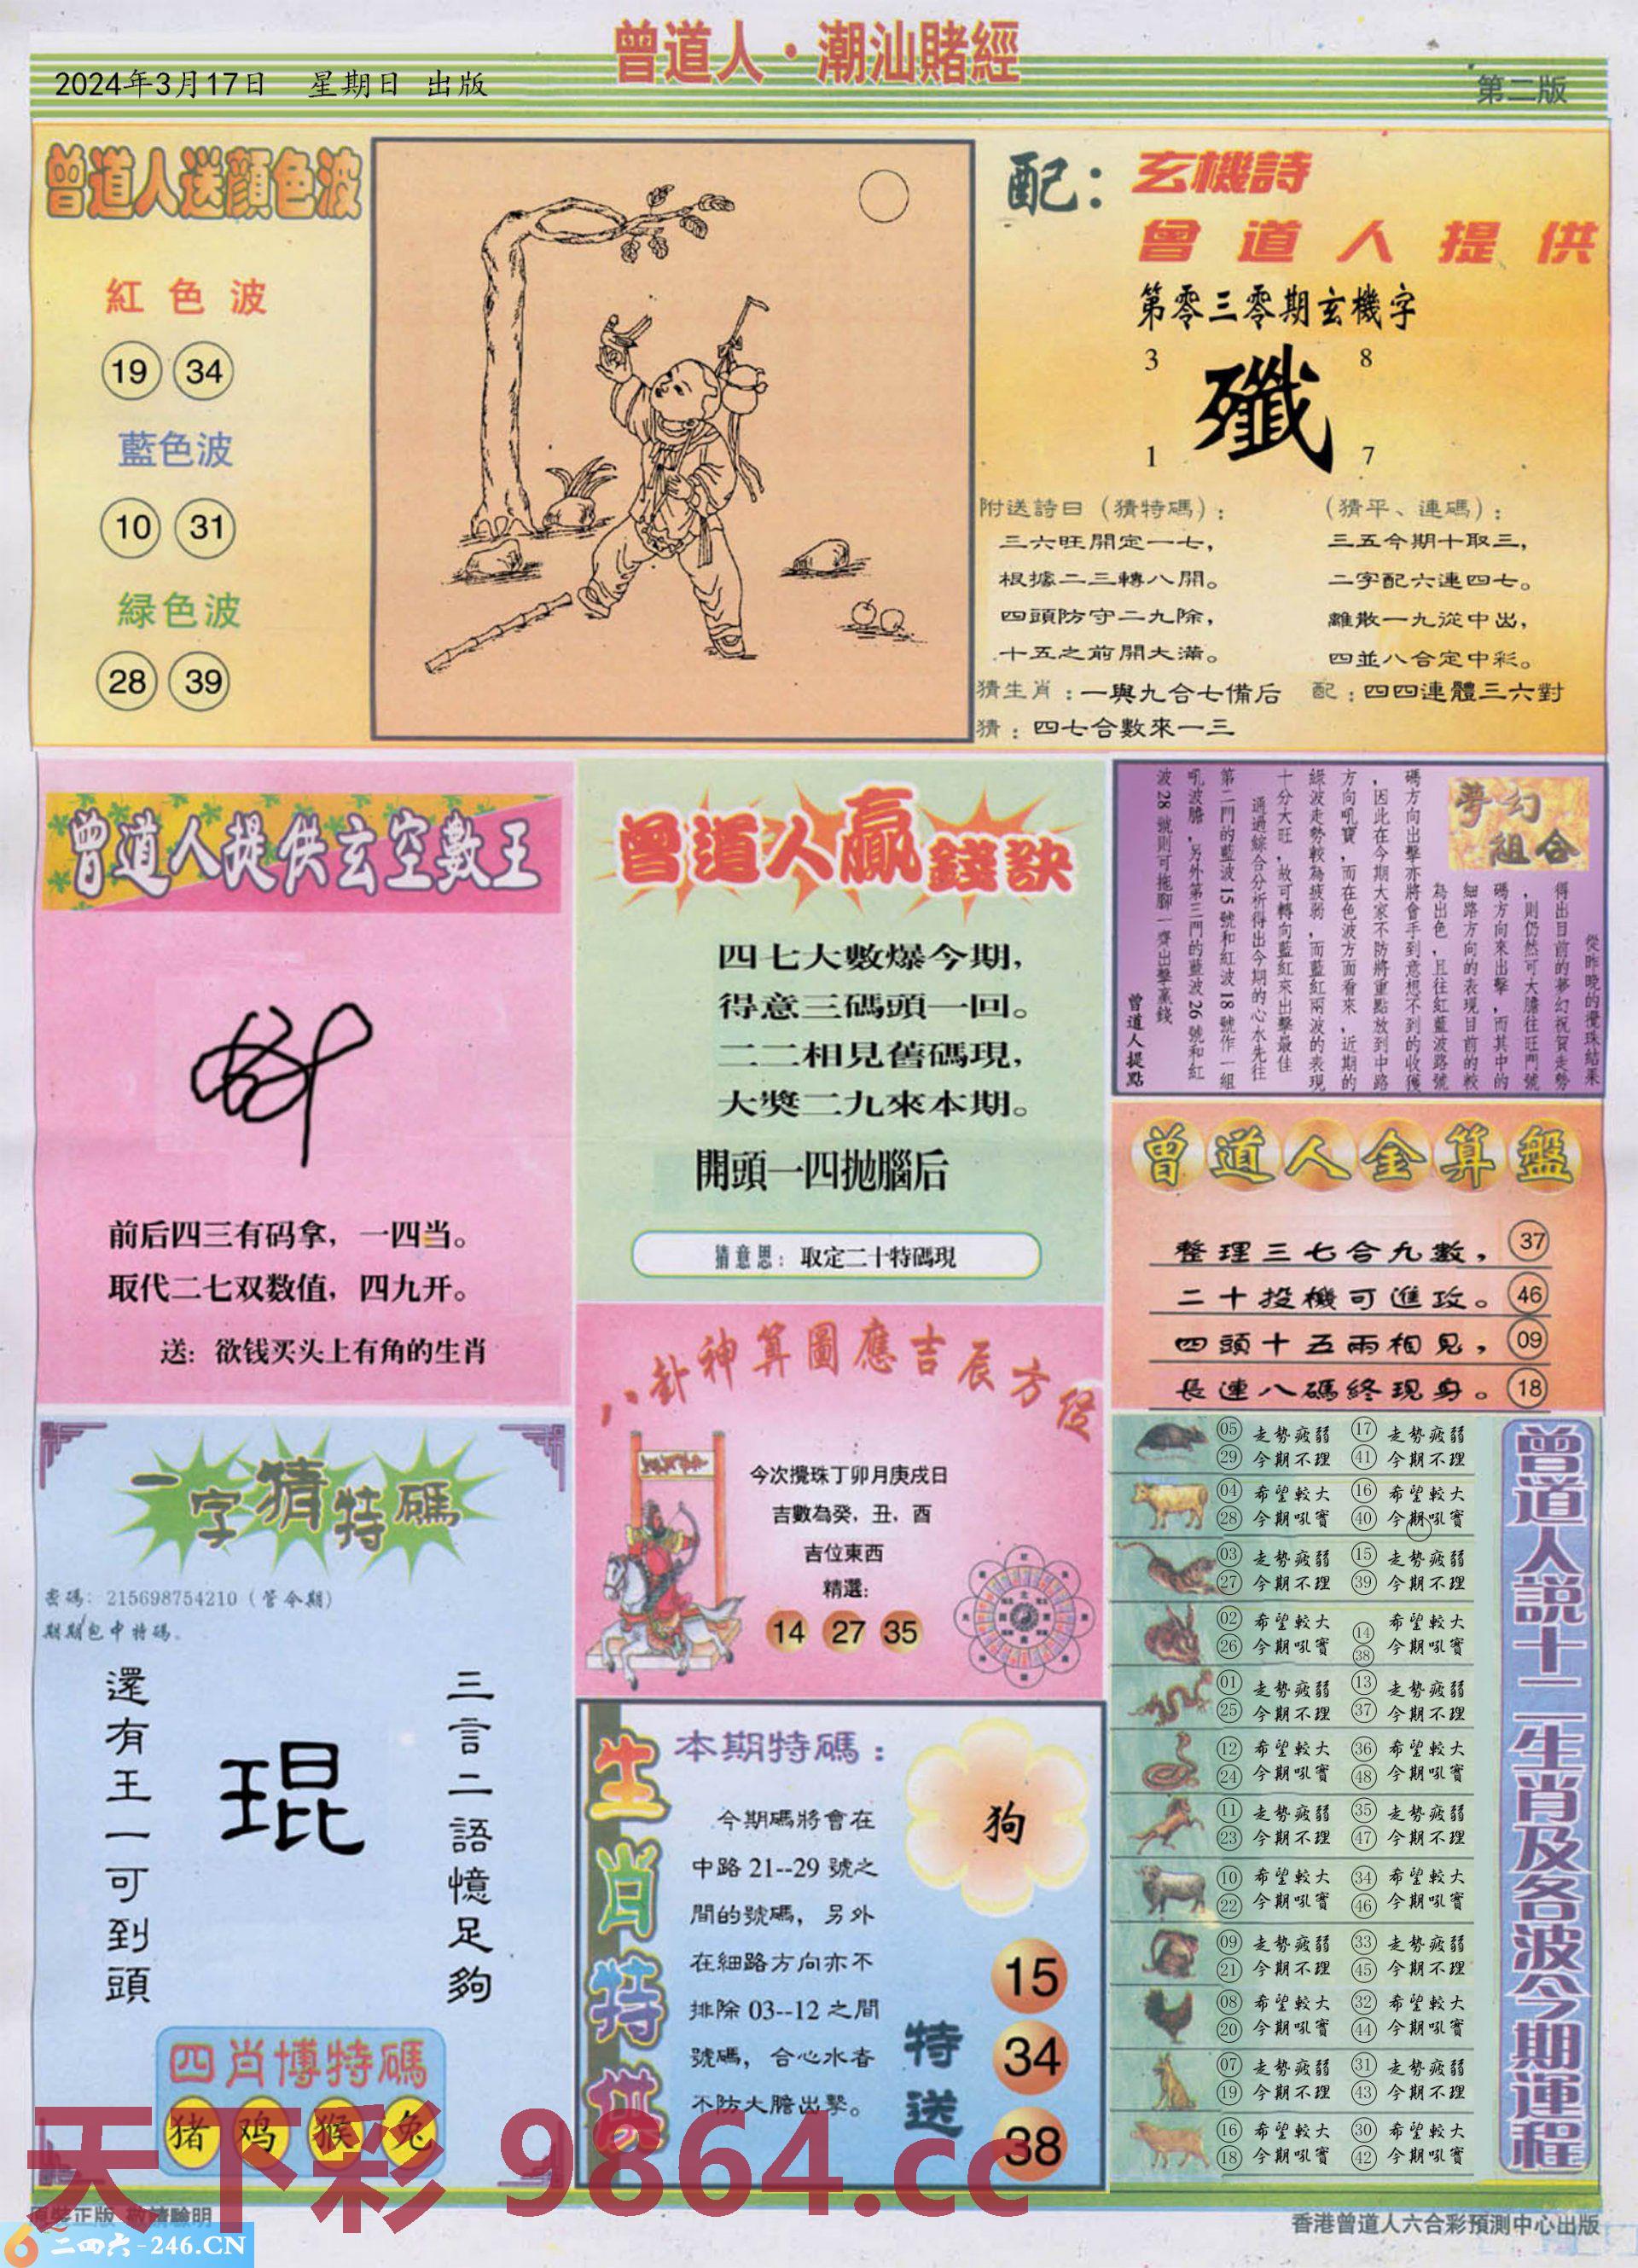 曾道人·潮汕賭經
2024年3月17日 星期日 出版
第二版
曾道人送顔色波
紅色波
19 34
藍色波
10 31
緑色波
28 39
配：
玄機詩
曾道人提供
第零三零期玄機字
3 8
殲
1 7
附送詩日（猜特碼）：
三六旺開定一七，
根據二三轉八開。
四頭防守二九除，
十五之前開大滿。
（猜平、連碼）：
三五今期十取三，
二字配六連四七。
離散一九從中出，
四並八合定中彩。
猜生肖：一與九合七備后
配：四四連體三六對
猜：四七合數來一三
曾道人提供玄空數王
前后四三有码拿，一四当。
取代二七双数值，四九开。
送：欲钱买头上有角的生肖
曾道人贏錢訣
四七大數爆今期，
得意三碼頭一回。
二二相見舊碼現，
大獎二九來本期。
開頭一四拋腦后
猜意思：取定二十特碼現
夢幻組合
從昨晚的攪珠結果
得出目前的夢幻祝賀走勢
，則仍然可大膽往旺門號
碼方向來出擊，而其中的
細路方向的表現目前的較
為出色，且往紅藍波路號
碼方向出擊亦將會手到意想不到的收獲
，因此在今期大家不防將重點放到中路
方向吼寶，而在色波方面看來，近期的
綠波走勢較為疲弱，而藍紅兩波的表現
十分大旺，故可轉向藍紅來出擊最佳
通過綜合分析得出今期的心水先往
第二門的藍波15號和紅波18號作一組
吼波膽，另外第三門的藍波26號和紅
波28號則可拖腳一齊出擊贏錢
曾道人提點
曾道人金算盤
整理三七合九數， 37
二十投機可進攻。 46
四頭十五兩相見， 09
長連八碼終現身。 18
八卦神算圖應吉辰方位
今次攪珠丁卯月庚戌日
吉數為癸，丑，酉
吉位東西
精選：
14 27 35
一字猜特碼
密碼：215698754210（管今期）
期期包中特碼。
還有王一可到頭
琨
三言二語憶足夠
四肖博特碼
猪 鸡 猴 兔
生肖特供
本期特碼：
今期碼將會在
中路21--29號之
間的號碼，另外
在細路方向亦不
排除03--12之間
號碼，合心水者
不防大膽出擊。
狗
特送
15
34
38
05 走勢疲弱 17 走勢疲弱
29 今期不理 41 今期不理
04 希望較大 16 希望較大
28 今期吼寶 40 今期吼寶
03 走勢疲弱 15 走勢疲弱
27 今期不理 39 今期不理
02 希望較大 14 希望較大
26 今期吼寶 38 今期吼寶
01 走勢疲弱 13 走勢疲弱
25 今期不理 37 今期不理
12 希望較大 36 希望較大
24 今期吼寶 48 今期吼寶
11 走勢疲弱 35 走勢疲弱
23 今期不理 47 今期不理
10 希望較大 34 希望較大
22 今期吼寶 46 今期吼寶
09 走勢疲弱 33 走勢疲弱
21 今期不理 45 今期不理
08 希望較大 32 希望較大
20 今期吼寶 44 今期吼寶
07 走勢疲弱 31 走勢疲弱
19 今期不理 43 今期不理
16 希望較大 30 希望較大
18 今期吼寶 42 今期吼寶
曾道人說十二生肖及各波今期運程
天下彩 9864.cc
原裝正版 敬請驗明
二四六-246.CN
香港曾道人六合彩預測中心出版